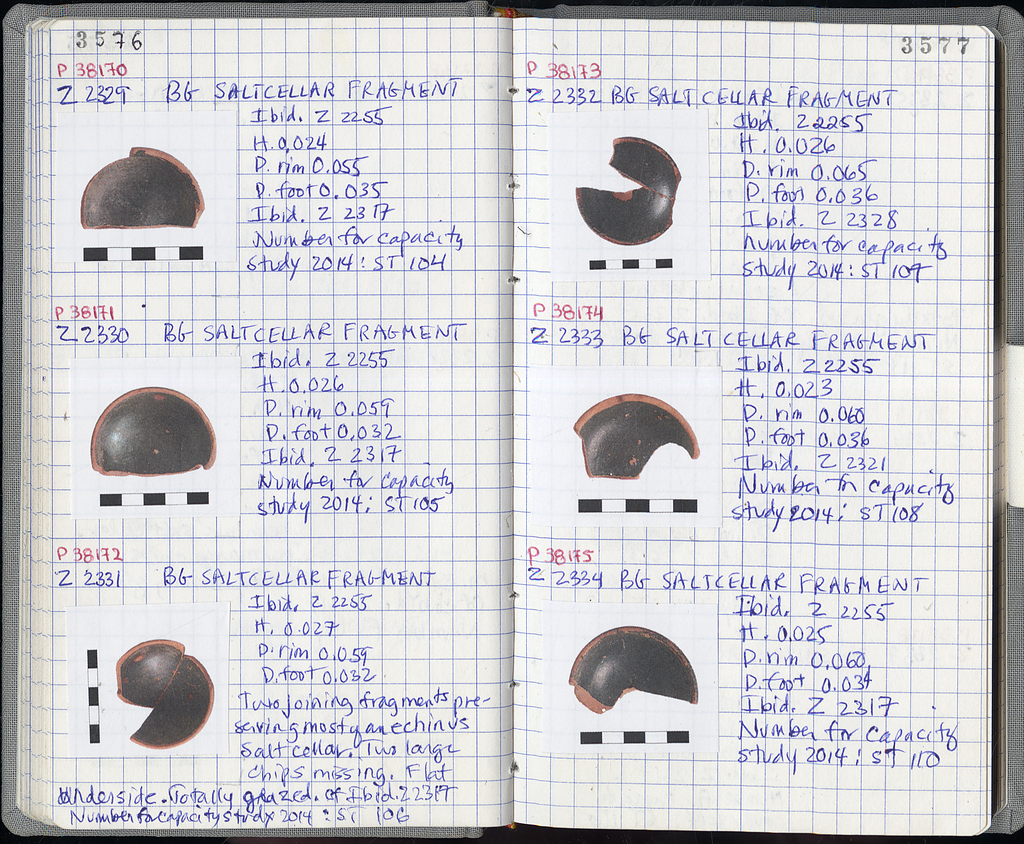 3576
P 38170
Z 2329 BG SALTCELLAR FRAGMENT
Ibid. Z 2255
H. 0,024
D. rim 0.055
D. foot 0.035
Ibid. Z 2317
Number for capacity
study 2014: ST 104
P 38171
Z 2330 BG SALTCELLAR FRAGMENT
Ibid. Z 2255
H. 0.026
D. rim 0.059
D. foot 0,032
Ibid. Z 2317
Number for capacity
study 2014: ST 105
P 38172
Z 2331 BG SALTCELLAR FRAGMENT
Ibid. Z 2255
H. 0.027
D. rim 0.059
D. foot 0.032
Two joining fragments pre-
serving mosty an echinus
saltcellar. Two large
chips missing. Flat
underside. Totally glazed. cf Ibid. Z 2317
Number for capacity study 2014: ST 106
3577
P 38173
Z 2332 BG SALTCELLAR FRAGMENT
Ibid. Z 2255
H. 0.026
D. rim 0.065
D. foot 0.036
Ibid. Z 2328
number for capacity
study 2014: ST 107
P 38174
Z 2333 BG SALTCELLAR FRAGMENT
Ibid. Z 2255
H. 0.023
D. rim 0.060
D. foot 0.036
Ibid. Z 2321
Number for capacity
study 2014: ST 108
P 38175
Z 2334 BG SALTCELLAR FRAGMENT
Ibid. Z 2255
H. 0.025
D. rim 0,060
D. foot 0.034
Ibid. Z 2317
Number for capacity
study 2014: ST 110